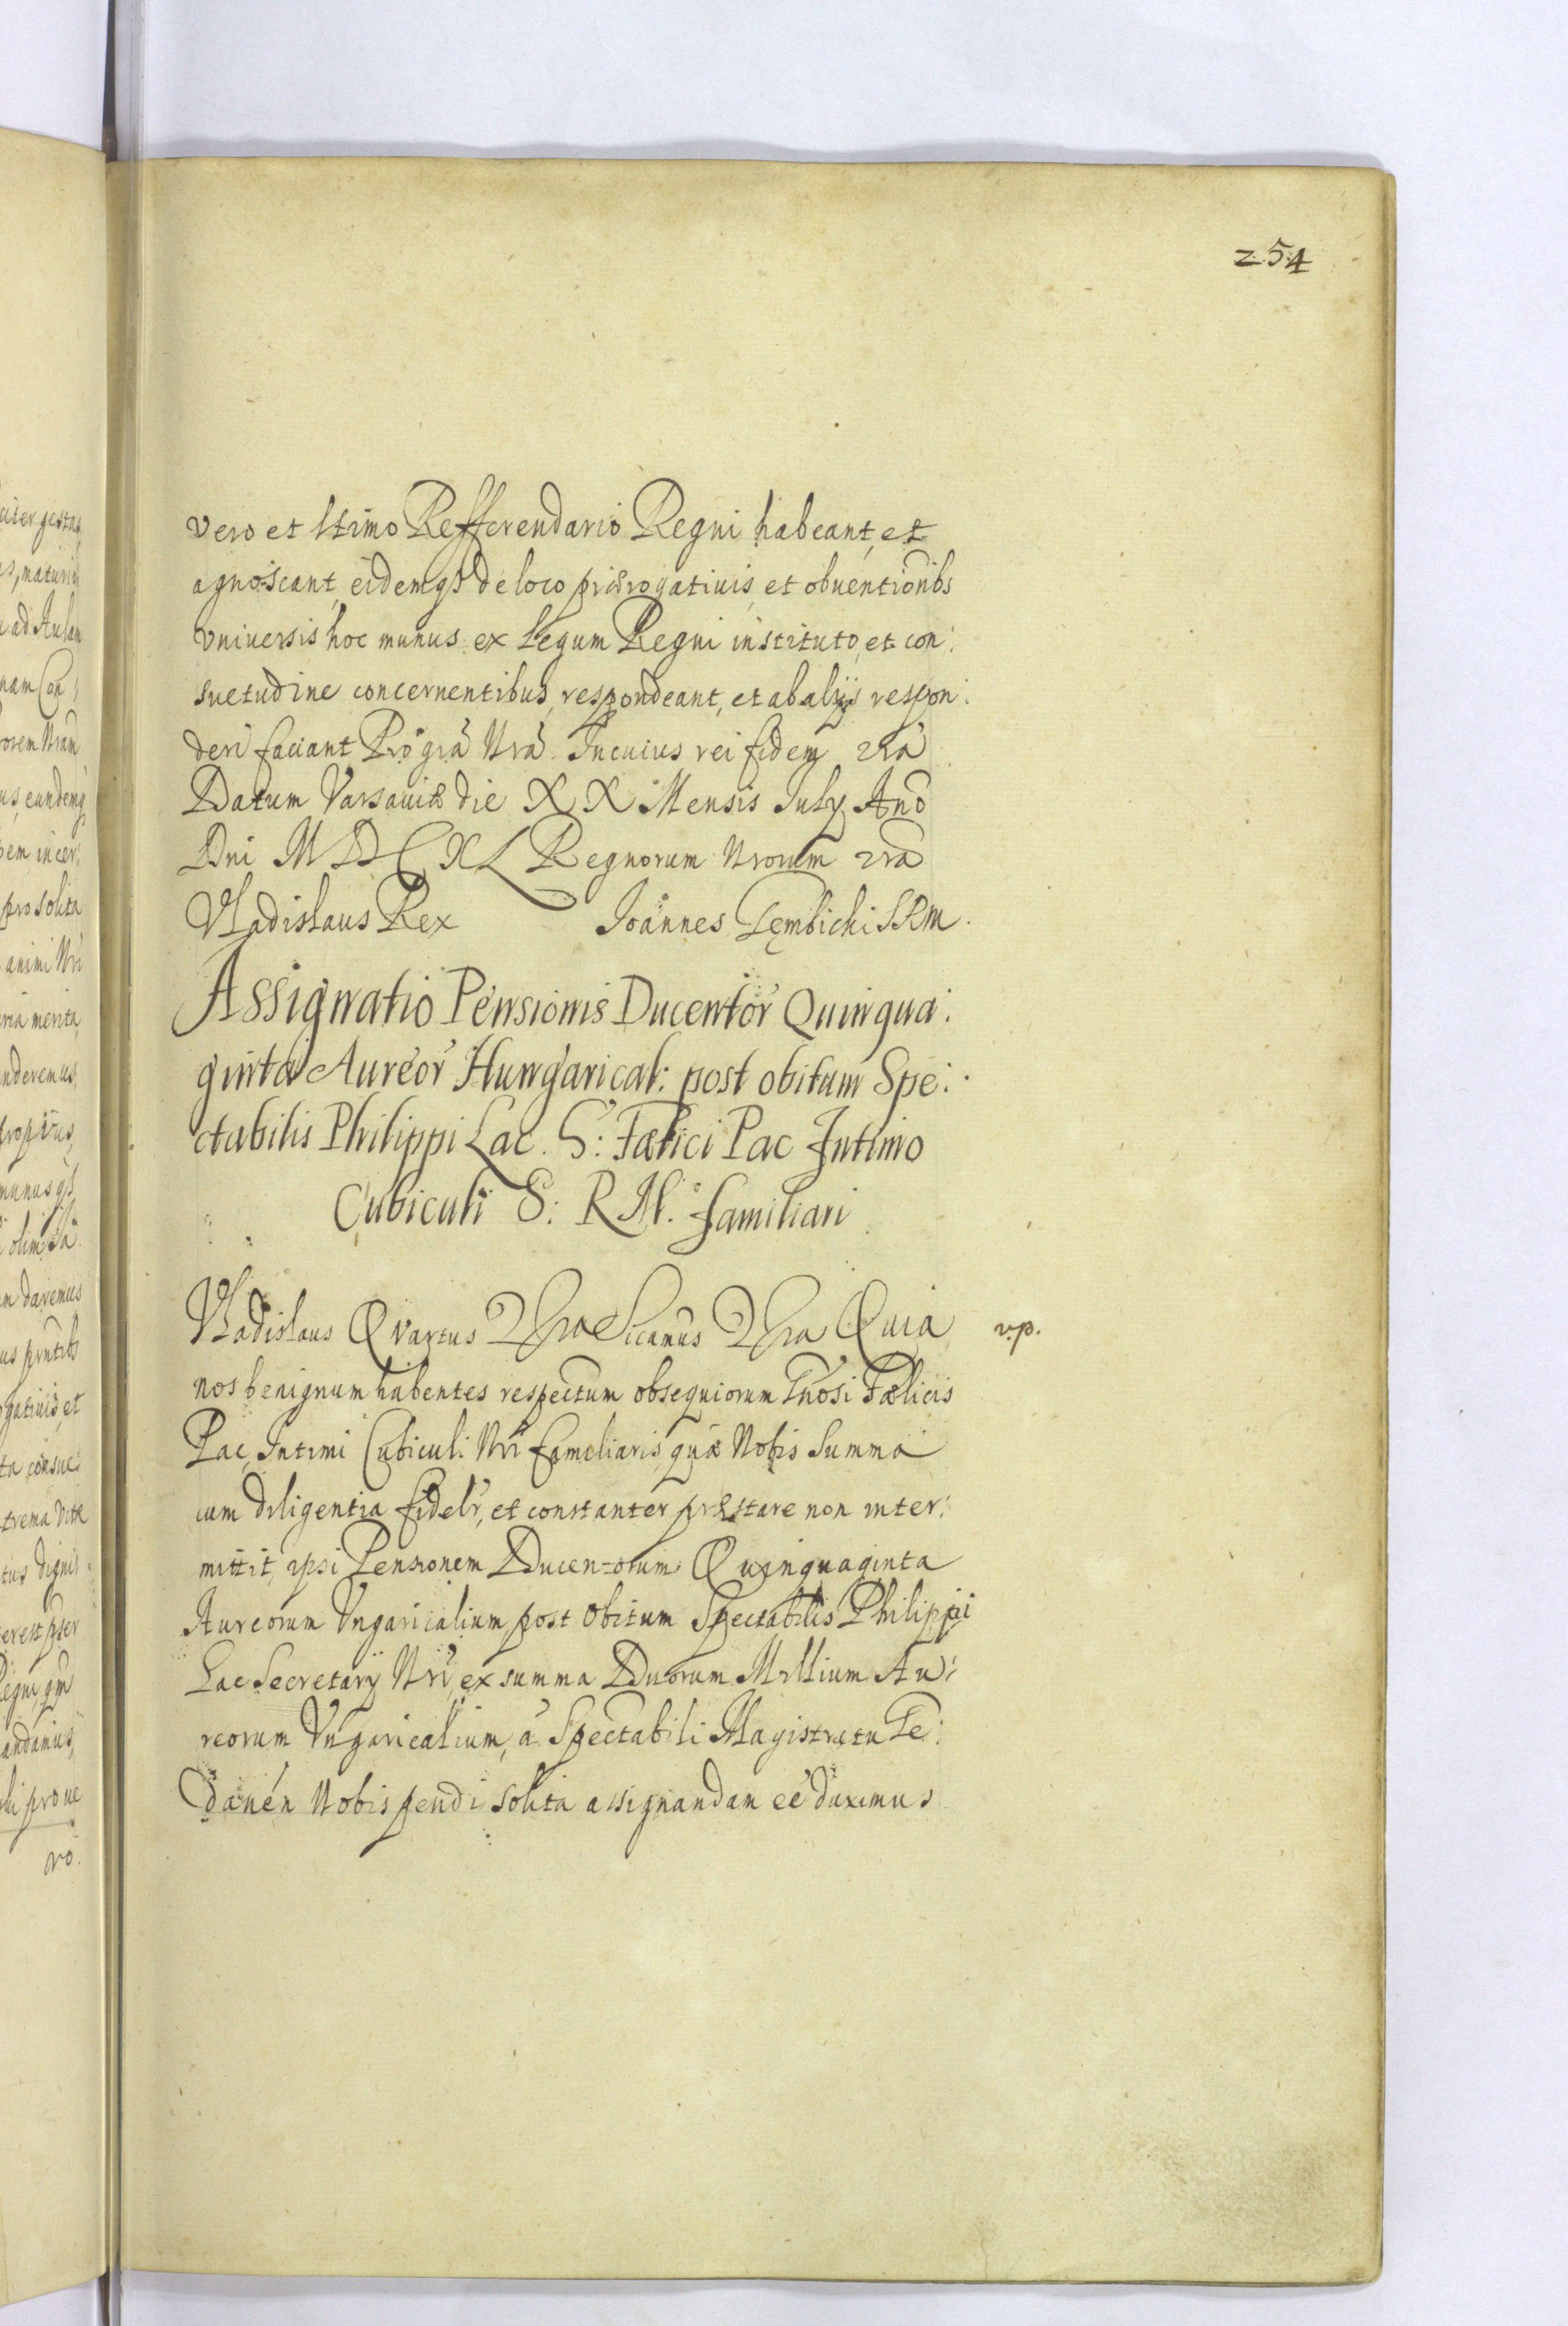 254
vero et ltimo Refferendario Regni habeant, et
agnoscant, eidemqs de loco prærogativis, et obventionibs
vniversis hoc munus ex Legum Regni instituto, et con:
suetudine concernentibus, respondeant, et ab alijs respon:
deri faciant Pro gra Nra. In cuius rei fidem zra
Datum Varsaviæ die XX Mensis July Ano
Dni MDCXL Regnorum Nrorum zra
Vladislaus Rex Joannes Gembichi SRM.
Assignatio Pensionis Ducentor Quinqua:
ginta Aureor Hungarical: post obitum Spe:
ctabilis Philippi Lac. G: Fælici Pac Intimo
Cubiculi S: R M. familiari
Vladislaus Qvartus Sicamus Quia v.p.
nos benignum habentes respectum obsequiorum Gnosi Fælicis
Pac, Intimi Cubiculi Nri familiaris, quæ Nobis summa
cum diligentia fidelr, et constanter præstare non inter:
mittit, ipsi Pensionem Ducentorum Quinquaginta
Aureorum Vngaricalium, post obitum Spectabilis Philippi
Lac Secretarij Nri, ex summa Duorum Millium Au:
reorum Vngaricalium, a Spectabili Magistratu Ge:
danen Nobis pendi solita assignandam eé duximus